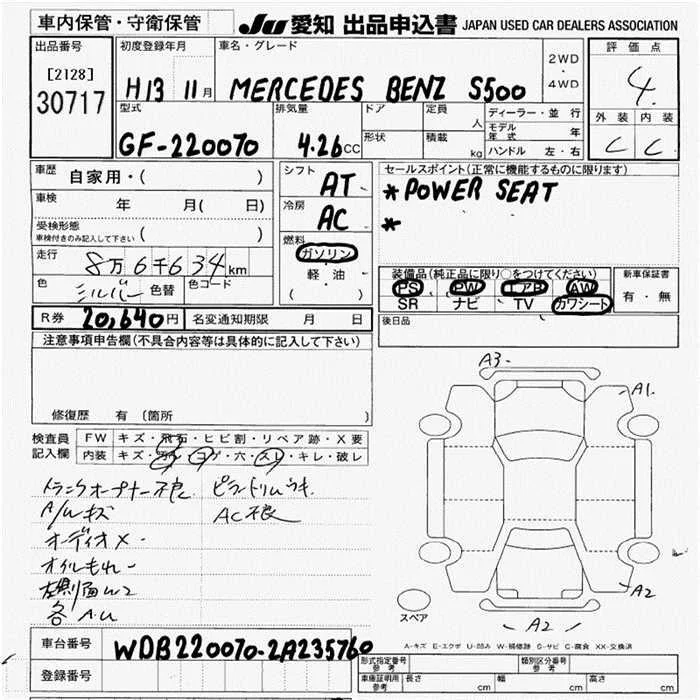 車内保管・守衛保管
JU 愛知 出品申込書 JAPAN USED CAR DEALERS ASSOCIATION
出品番号
[2128]
30717
初度登録年月
H13 11月
車名・グレード
MERCEDES BENZ S500
2WD
・
4WD
評価点
4.
外装 内装
C C
型式
GF-220070
排気量
4.26cc
ドア
形状
定員
人
積載
kg
ディーラー・並行
モデル年式 年
ハンドル 左・右
車歴 自家用・( )
車検 年 月( 日)
受検形態
車検付きのみ記入して下さい ( )
走行 8万6千634km
色 シルバー 色替 色コード
シフト
AT
冷房
AC
燃料
ガソリン
・
軽油
( )
セールスポイント(正常に機能するものに限ります)
*POWER SEAT
*
装備品(純正品に限り○をつけてください)
PS PW エアB AW
SR ナビ TV カワシート
新車保証書
有・無
R券 20,640円 名変通知期限 月 日
後日品
注意事項申告欄(不具合内容等は具体的に記入して下さい)
修復歴 有 〔箇所 〕
検査員記入欄
FW キズ・飛石・ヒビ割・リペア跡・X要
内装 キズ・汚れ・コゲ・穴・スレ・キレ・破レ
トランクオープナー不良 
A/Wキズ AC不良
オーディオX
オイルもれ
左側面W2
各A.U
A3
A1
A2
A2
スペア
A-キズ E-エクボ U-凹み W-補修跡 S-サビ C-腐食 XX-交換済
車台番号 WDB220070-2A235760
登録番号
形式指定番号 参考
類別区分番号 参考
車庫証明用 参考 長さ cm 幅 cm 高さ cm